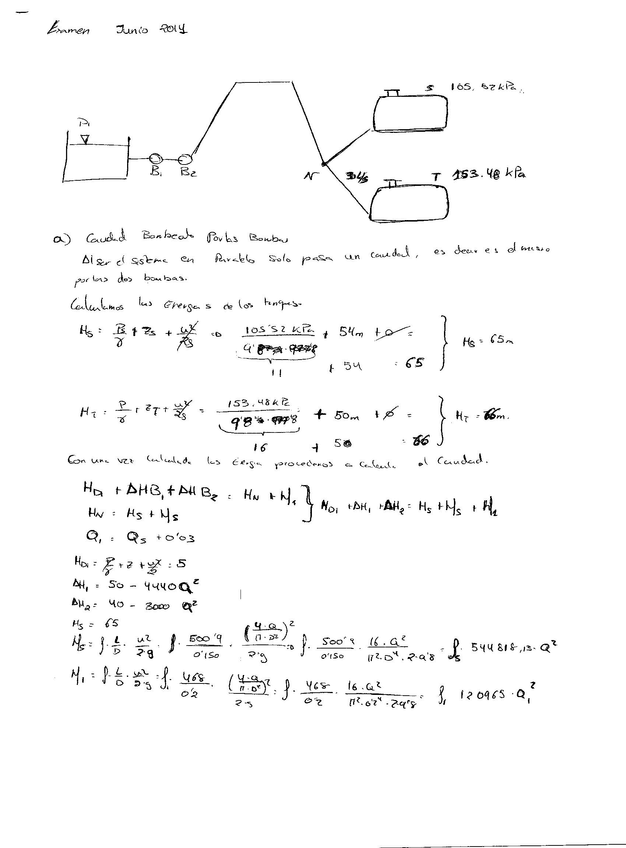 Examen Junio 2014
S 105,52 kPa.
B₁ B₂
N 30 l/s T 153.48 kPa
a) Caudal Bombeado Por las Bombas
Al ser el sistema en Paralelo Solo pasa un caudal, es decir es el mismo
por las dos bombas.
Calculamos las Energias de los tanques.
H_S = P/γ + Z_S + u²/2g => 105'52 kPa / 9'8 + 54m + 0 =
11 + 54 = 65 } H_S = 65m
H_T = P/γ + Z_T + u²/2g = 153.48 kPa / 9'8 + 50m + 0 =
16 + 50 = 66 } H_T = 66m.
Con una vez Calculada las Energia procedemos a Calcular el Caudal.
H_D1 + ΔHB₁ + ΔHB₂ = H_N + h₁
H_N = H_S + h_S } H_D1 + ΔH₁ + ΔH₂ = H_S + h_S + h₁
Q₁ = Q_S + 0'03
H_D1 = P/γ + z + u²/2g = 5
ΔH₁ = 50 - 4440 Q²
ΔH₂ = 40 - 3000 Q²
H_S = 65
h_S = f · L/D · u²/2g = f · 500'9/0'150 · (4·Q/π·D²)²/2·g => f · 500'9/0'150 · 16·Q²/π²·D⁴·2·9'8 = f_S 544818,13 · Q²
h₁ = f · L/D · u²/2·g = f₁ · 468/0'2 · (4·Q/π·D²)²/2·g = f · 468/0'2 · 16·Q²/π²·0'2⁴·2·9'8 = f₁ 120965 · Q₁²